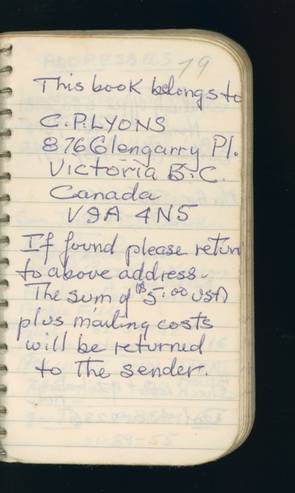 79
This book belongs to
C.P. LYONS
876 Glengarry Pl.
Victoria B.C.
Canada
V9A 4N5
If found please return
to above address.
The sum of $5.00 USA
plus mailing costs
will be returned
to the sender.